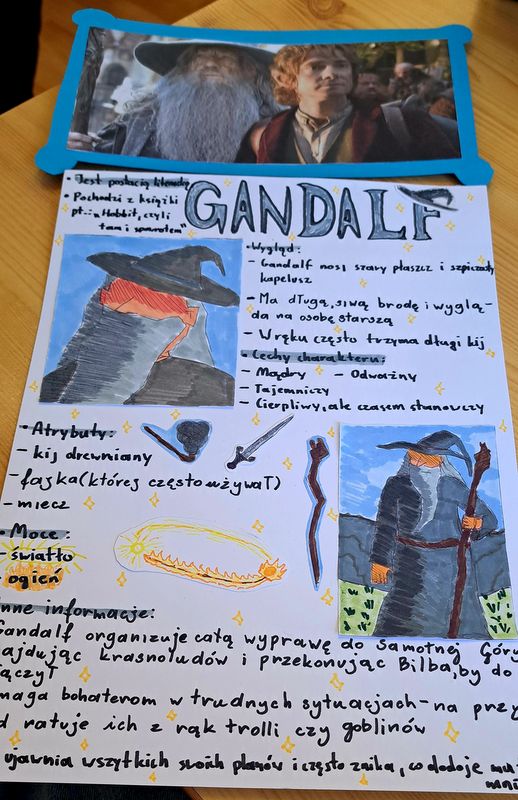 • Jest postacią literacką
• Pochodzi z książki
pt.: „Hobbit, czyli
tam i spowrotem"
GANDALF
• Wygląd:
- Gandalf nosi szary płaszcz i szpiczasty
kapelusz
- Ma długą, siwą brodę i wyglą-
da na osobę starszą
- W ręku często trzyma długi kij
• Cechy charakteru:
- Mądry - Odważny
- Tajemniczy
- Cierpliwy, ale czasem stanowczy
• Atrybuty:
- kij drewniany
- fajka (której często używał)
- miecz
• Moce:
- światło
- ogień
nne informacje:
Gandalf organizuje całą wyprawę do Samotnej Góry
ajdując krasnoludów i przekonując Bilba, by do
łączył
maga bohaterom w trudnych sytuacjach - na przy
d ratuje ich z rąk trolli czy goblinów
ujawnia wszystkich swoich planów i często znika, co dodaje mu